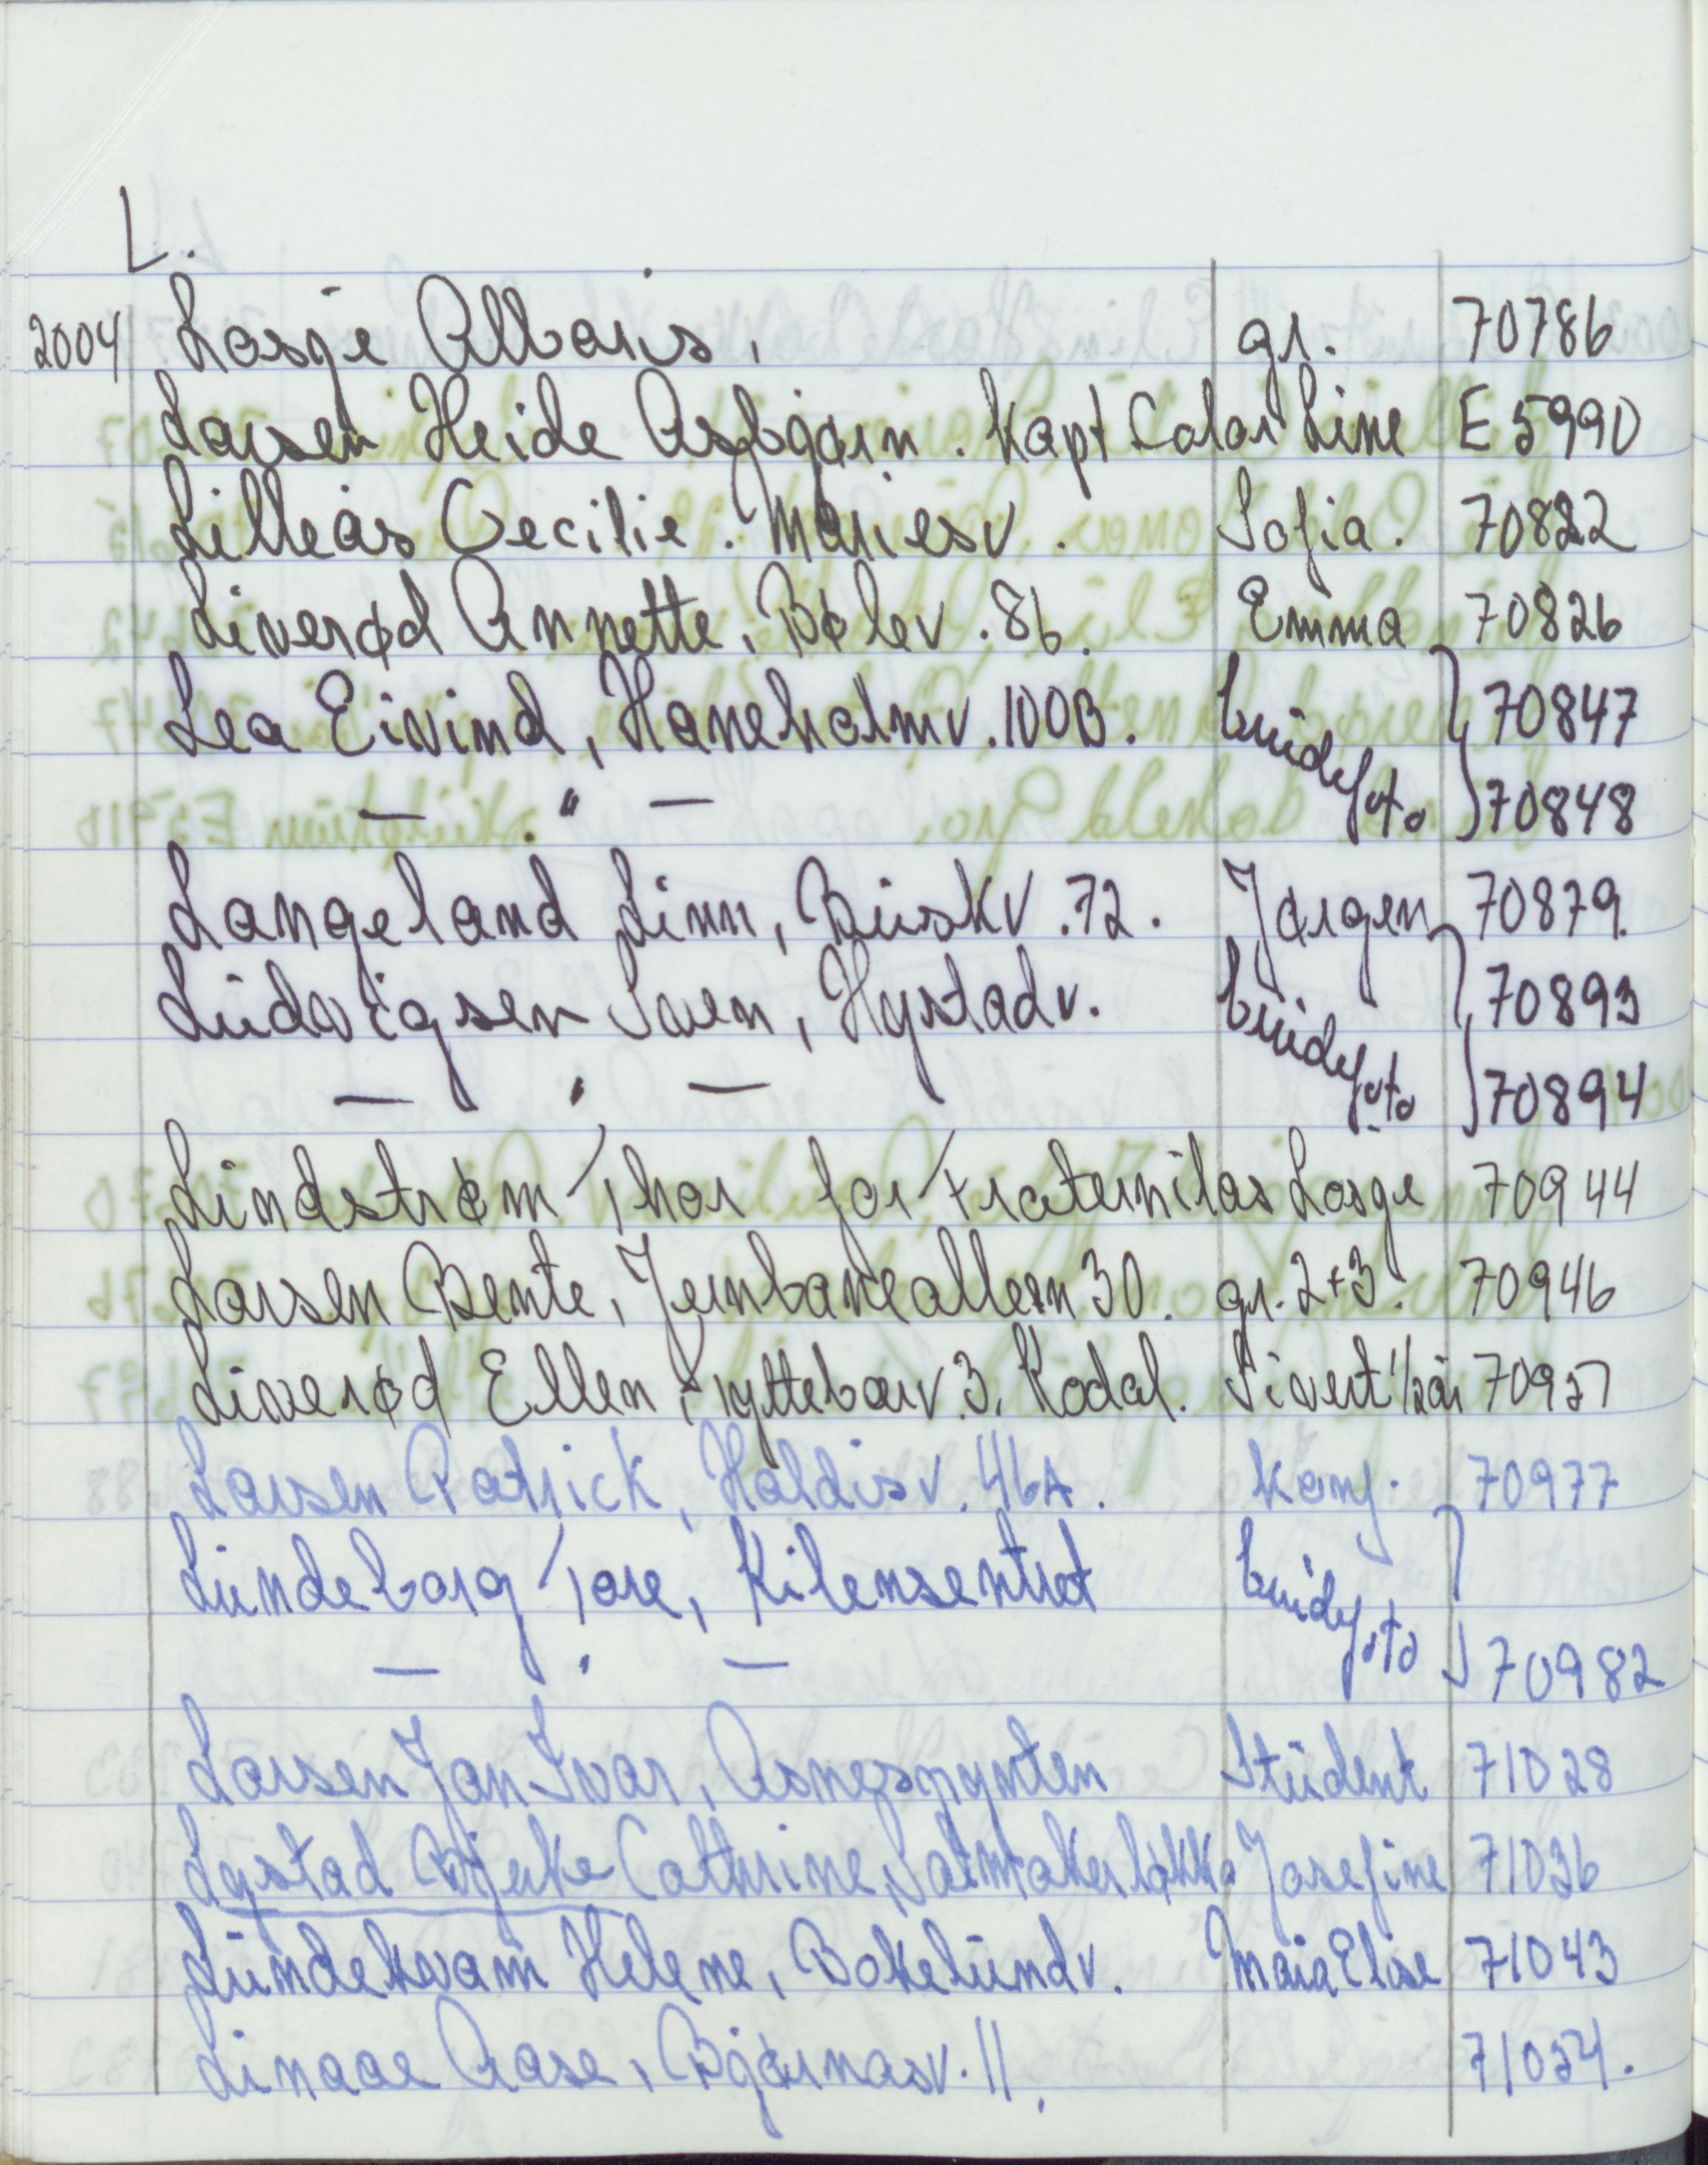 L.
2004 Losje Albaris, gr. 70786
Larsen Heide Asbjørn. Kapt Color Line E 5990
Lilleås Cecilie. Mariesv. Sofia. 70822
Liverød Annette, Bølev. 86. Emma 70826
Lea Eivind, Haneholmv. 100B. brudefoto 70847
— " — 70848
Langeland Linn, Buskv. 72. Jørgen 70879.
Ludvigsen Sven, Hystadv. brudefoto 70893
— " — 70894
Lindstrøm Thor for Fraternitas Losje 70944
Larsen Bente, Jernbanealleen 30. gr. 2+3. 70946
Liverød Ellen, Tyttebærv. 3. Kodal. Sivert 1/2år 70957
Larsen Patrick, Haldisv. 46A. konf. 70977
Lundeborg Tore, Kilensentret brudefoto
— " — 70982
Larsen Jan Ivar, Asnespynten Student 71028
Lystad Bjerke Cathrine, Josefine 71036
Lundekvam Helene, Bokelundv. Maia Elise 71043
Linaae Aase, Bjørnasv. 11. 71054.